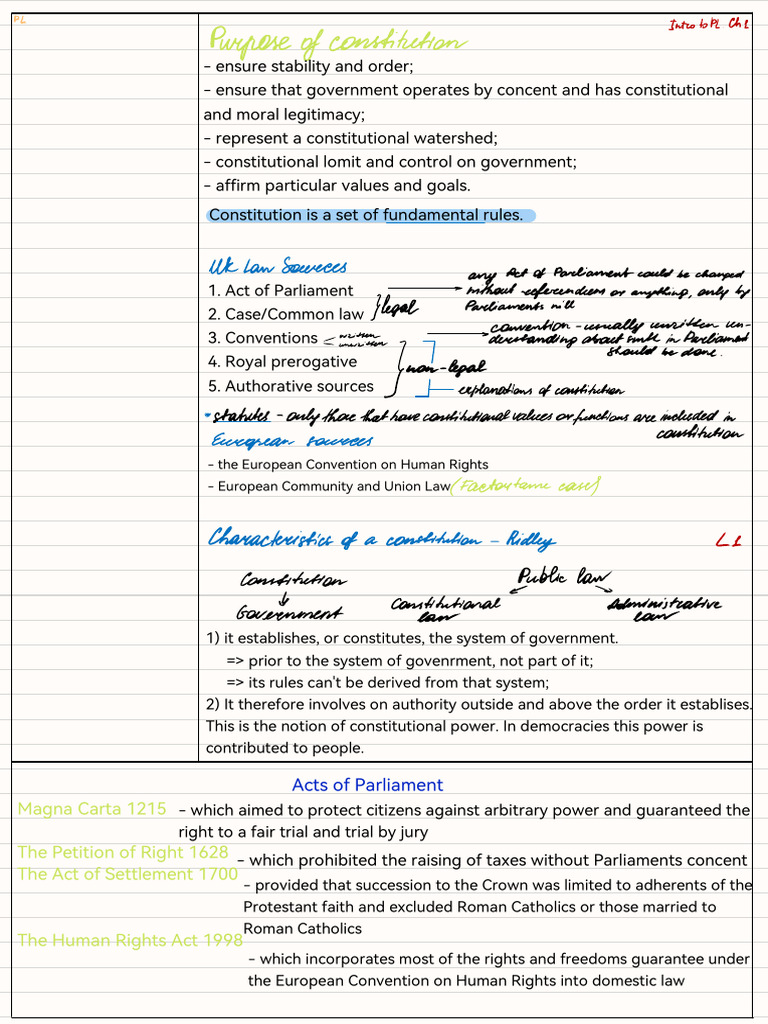 PL
Intro to PL Ch1
Purpose of constitution
- ensure stability and order;
- ensure that government operates by concent and has constitutional
and moral legitimacy;
- represent a constitutional watershed;
- constitutional lomit and control on government;
- affirm particular values and goals.
Constitution is a set of fundamental rules.
UK Law Sources
1. Act of Parliament
2. Case/Common law
legal
any Act of Parliament could be changed
without referendums or anything, only by
Parliaments will
3. Conventions
written
unwritten
convention - usually unwritten un-
derstanding about smth in Parliament
should be done.
4. Royal prerogative
5. Authorative sources
non-legal
explanations of constitution
* statutes - only those that have constitutional values or functions are included in
constitution
European sources
- the European Convention on Human Rights
- European Community and Union Law (Factortame case)
Characteristics of a constitution - Ridley
L1
Constitution
Government
Public law
Constitutional
law
Administrative
law
1) it establishes, or constitutes, the system of government.
=> prior to the system of govenrment, not part of it;
=> its rules can't be derived from that system;
2) It therefore involves on authority outside and above the order it establises.
This is the notion of constitutional power. In democracies this power is
contributed to people.
Acts of Parliament
Magna Carta 1215 - which aimed to protect citizens against arbitrary power and guaranteed the
right to a fair trial and trial by jury
The Petition of Right 1628 - which prohibited the raising of taxes without Parliaments concent
The Act of Settlement 1700 - provided that succession to the Crown was limited to adherents of the
Protestant faith and excluded Roman Catholics or those married to
Roman Catholics
The Human Rights Act 1998 - which incorporates most of the rights and freedoms guarantee under
the European Convention on Human Rights into domestic law